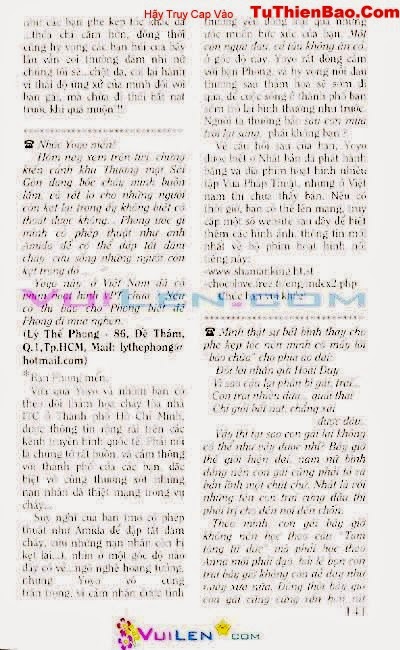 Hãy Truy Cap Vào TuThienBao.Com
như các bạn phe kẹp tóc khác đã
...thóa chí cảm hờn, đồng thời
cũng hy vọng các bạn hữu của bây
lâu vẫn coi thường đám nhi nữ
chúng tôi sẽ...chột dạ,
vì thái độ ứng xử của mình đối với
bạn gái, mà chừa đi thói bắt nạt
trước khi quá muộn !!
☎ Nhỏi Yoyo mến!
Hôm nay xem trên tivi, chứng
kiến cảnh khu Thương mại Sài
Gòn đang bốc cháy mình buồn
lắm, có rất lo cho những người
còn kẹt lại trong đó không biết có
thoát được không... Phong ước gì
mình có phép thuật như anh
Amida để có thể dập tắt đám
cháy, cứu sống những người còn
kẹt trong đó...
Yoyo này, ở Việt Nam đã có
Yoyo
có thì bảo cho Phong biết để
Phong đi mua nghen.
(Lý Thế Phong - 86, Đề Thám,
Q.1,Tp.HCM, Mail: lythephong@
hotmail.com)
*Bạn Phong mến,
Vừa qua Yoyo và nhóm bạn có
theo dõi thảm họa cháy tòa nhà
ITC ở Thành phố Hồ Chí Minh,
được thông tin rộng rãi trên các
kênh truyền hình quốc tế. Phải nói
là chúng tớ rất buồn, và cảm thông
với thành phố của các bạn, đặc
biệt vô cùng thương xót những
nạn nhân đã thiệt mạng trong vụ
cháy...
Suy nghĩ của bạn (mà có phép
thuật như Amida để dập tắt đám
cháy, cứu những nạn nhân còn bị
kẹt lại...), nhìn ở một góc độ nào
đấy có vẻ...ngô nghê hoang tưởng,
nhưng Yoyo vô cùng
trân trọng, vì cảm nhận được tình
thương yêu đồng loại qua những
ước muốn bức xúc của bạn. Một
con ngựa đau, cả tàu không ăn cỏ,
ở góc độ này, Yoyo rất đồng cảm
với bạn Phong, và hy vọng nỗi đau
thương sau thảm họa sẽ sớm đi
qua, để cuộc sống ở thành phố bạn
sớm trở lại bình thường như trước.
Người ta thường bảo sau cơn mưa
trời lại sáng, phải không bạn ?
Về câu hỏi sau của bạn, Yoyo
được biết ở Nhật Bản đã phát hành
băng và đĩa phim hoạt hình nhiều
tập Vua Pháp Thuật, nhưng ở Việt
nam thì chưa thấy bán. Nếu có
thời giờ, bạn có thể lên mạng, truy
cập một số website sau đây để biết
thêm các hình ảnh, thông tin mới
nhất về bộ phim hoạt hình nổi
tiếng này:
www.shamanking.ht.st
index2.php
VUILEN.COM
☎ Mình thật sự bất bình thay cho
phe kẹp tóc nên mình có mấy lời
"bào chữa" cho phía ấy đây:
Đôi lời nhắn gửi Hoài Duy
Vì sao cậu lại phản bị gái, trai...
Con trai nhiều đứa... quái thai
Chỉ giỏi bắt nạt, chẳng xài
được đâu..
Vậy thì tại sao con gái lại không
có thể như vậy được nhỉ? Bây giờ
thế giới hiện đại, nam nữ bình
đẳng nên con gái cũng phải tỏ ra
bản lĩnh một chút chứ. Nhất là với
những tên con trai cứng đầu thì
phải trị cho đến nơi đến chốn.
Theo mình, con gái bây giờ
không nên học theo câu "Tam
tòng tứ đức" mà phải học theo
Anna mới phải đạo, bởi lẽ bọn con
trai bây giờ không còn dễ dạy như
ngày xưa nữa. Đồng thời bây giờ
con gái cũng cứng rắn hơn, rất
141
VUILEN.COM